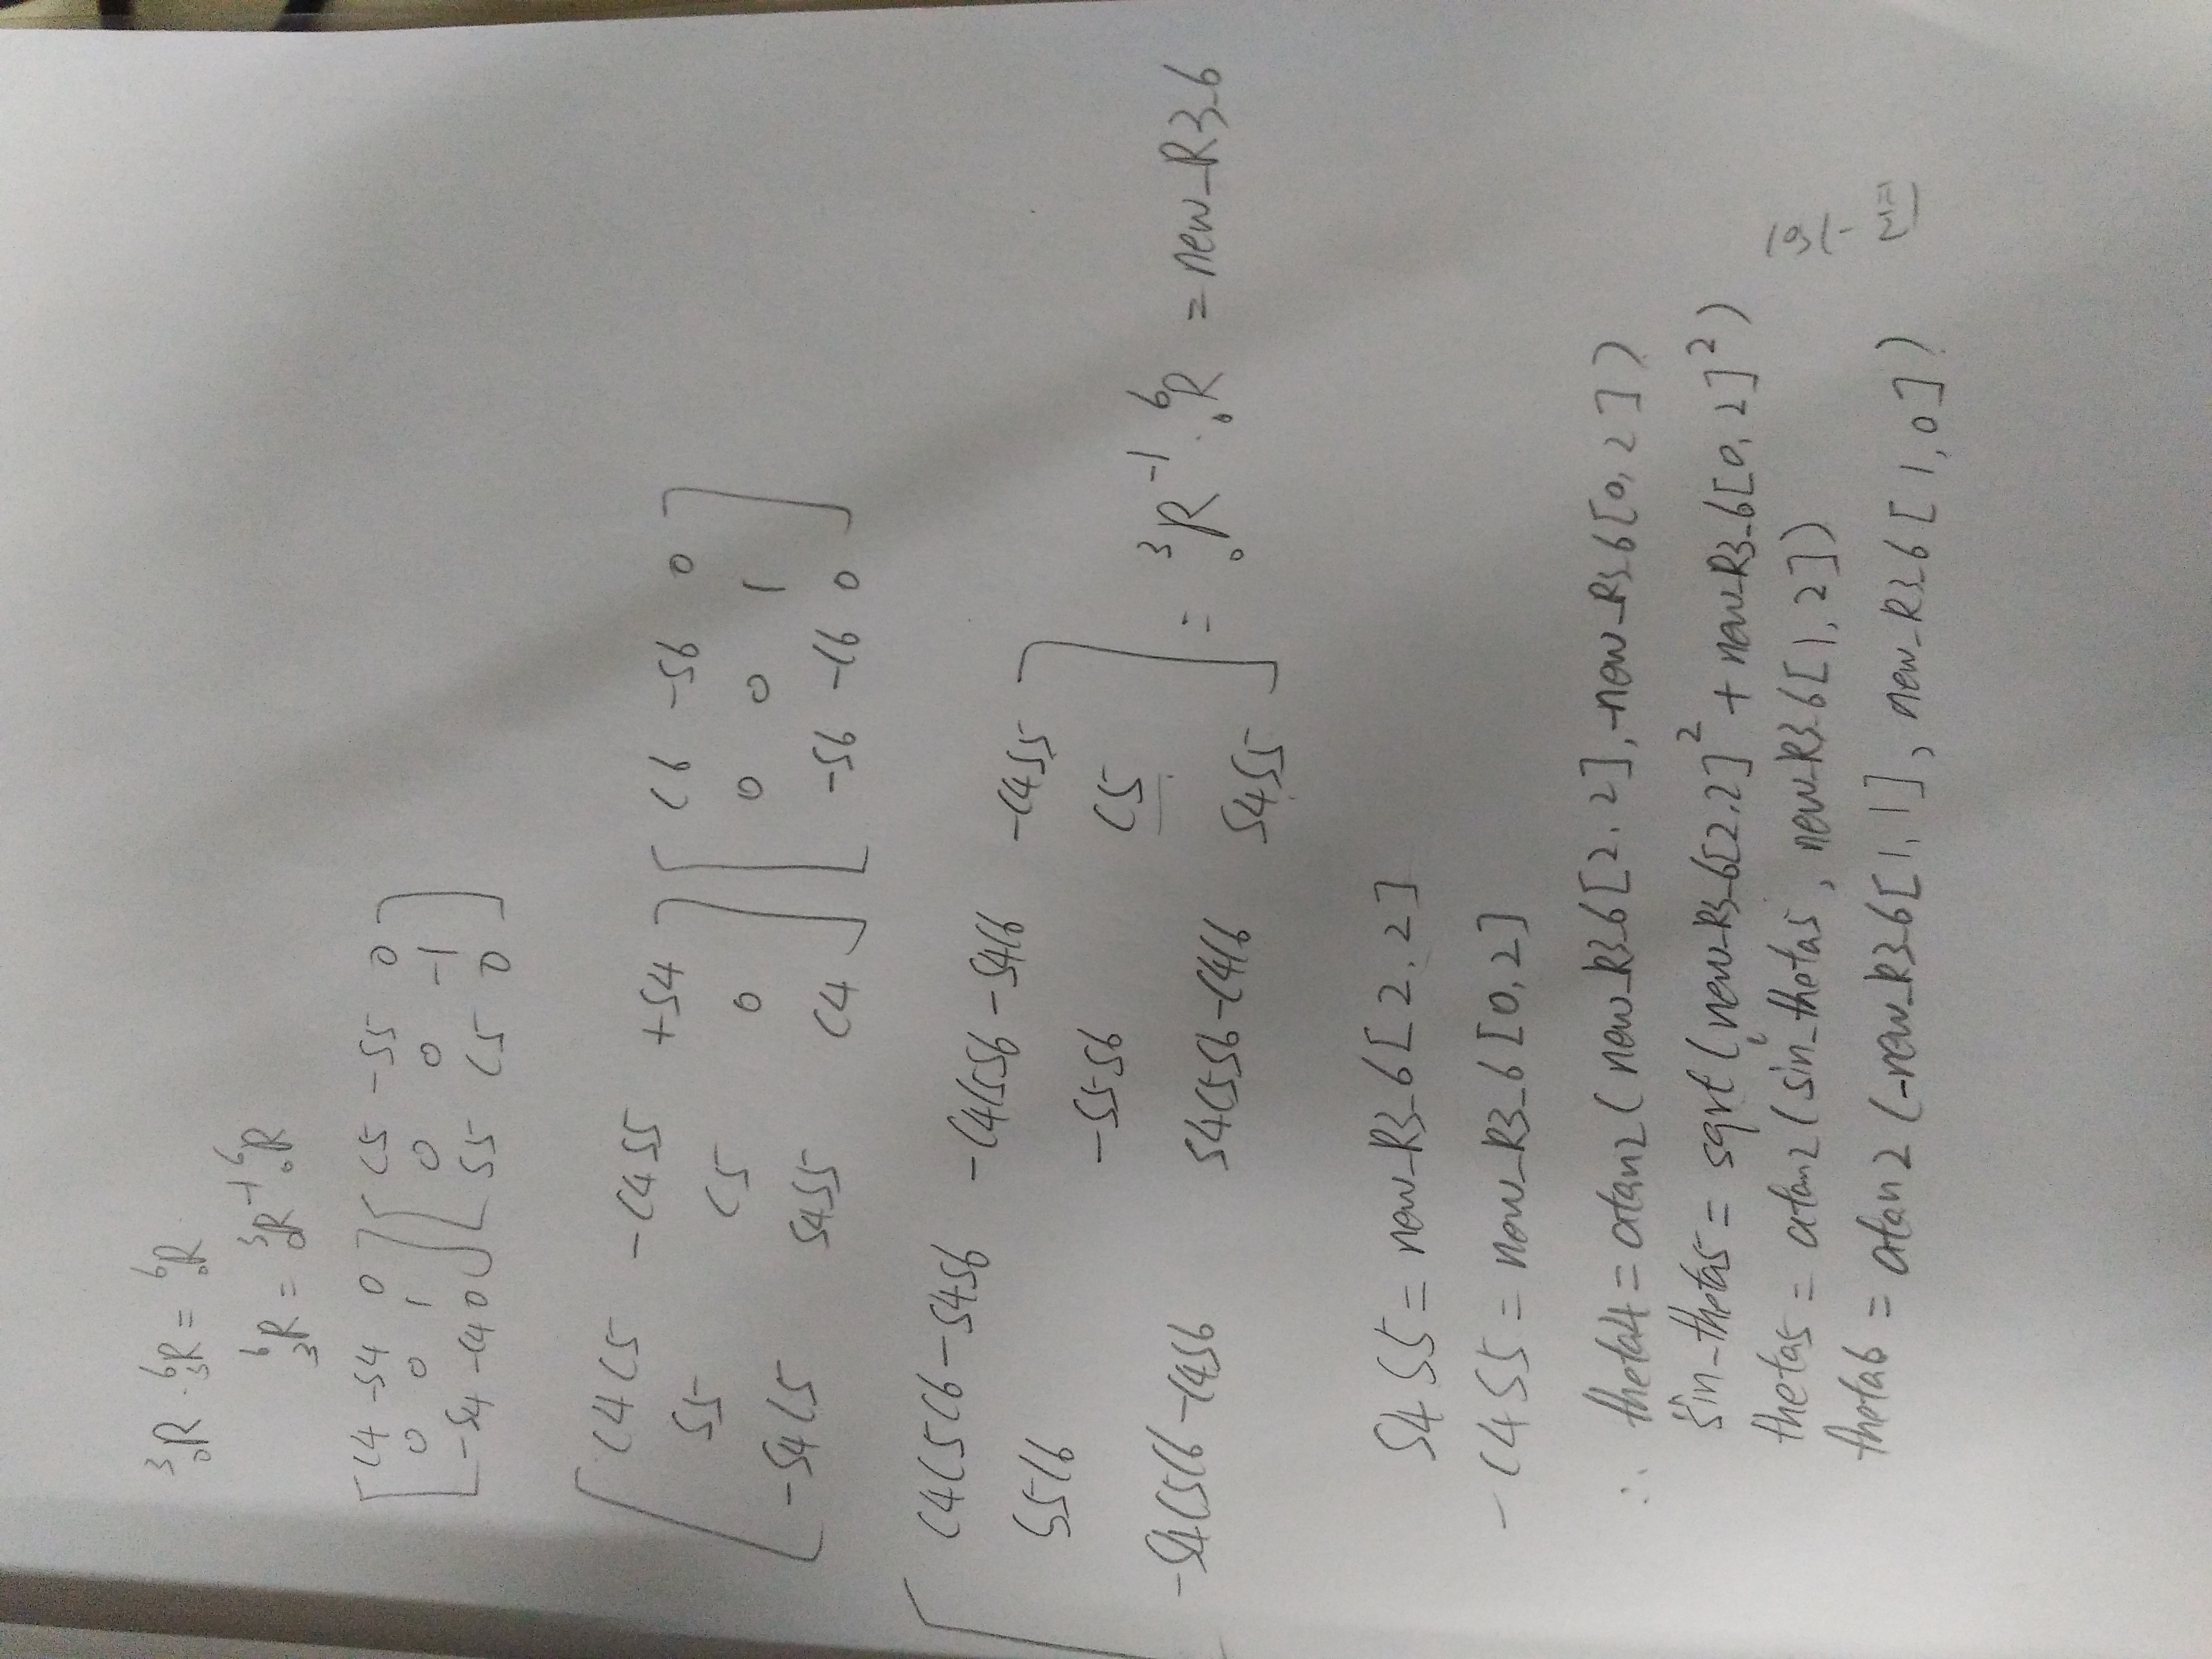 ³₀R · ⁶₃R = ⁶₀R
⁶₃R = ³₀R⁻¹ ⁶₀R
[ C4 -S4 0 ] [ C5 -S5 0 ]
0 0 1 0 0 -1
[ -S4 -C4 0 ] [ S5 C5 0 ]
[ C4C5 -C4S5 +S4 ] [ C6 -S6 0 ]
S5 C5 0 0 0 1
[ -S4C5 S4S5 C4 ] [ -S6 -C6 0 ]
[ C4C5C6-S4S6 -C4C5S6-S4C6 -C4S5 ]
S5C6 -S5S6 C5
-S4C5C6-C4S6 S4C5S6-C4C6 S4S5 ] = ³₀R⁻¹ · ⁶₀R = new_R3_6
S4S5 = new_R3_6[2,2]
-C4S5 = new_R3_6[0,2]
∴ theta4 = atan2(new_R3_6[2,2], -new_R3_6[0,2])
sin_theta5 = sqrt(new_R3_6[2,2]² + new_R3_6[0,2]²)
theta5 = atan2(sin_theta5, new_R3_6[1,2])
theta6 = atan2(-new_R3_6[1,1], new_R3_6[1,0])